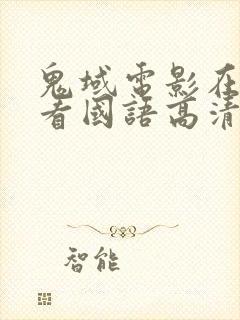 鬼域電影在
看國語高清
智能